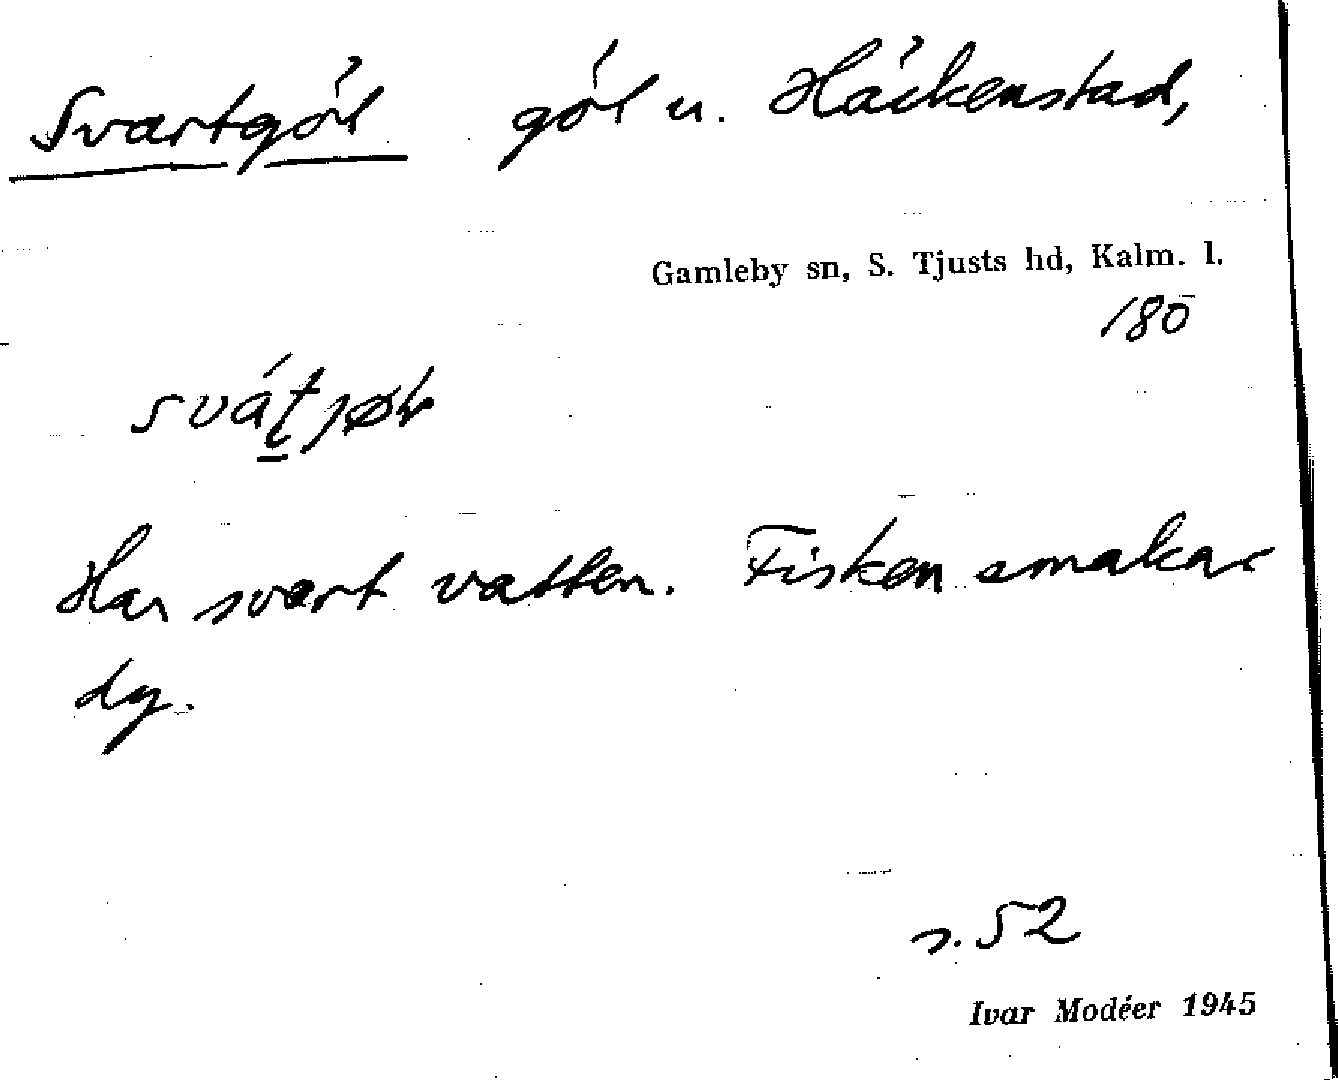 Svartgöl göl u. Häckenstad,
Gamleby sn, S. Tjusts hd, Kalm. l.
180
Har svart vatten. Fisken smakar
dy.
s. 52
Ivar Modéer 1945